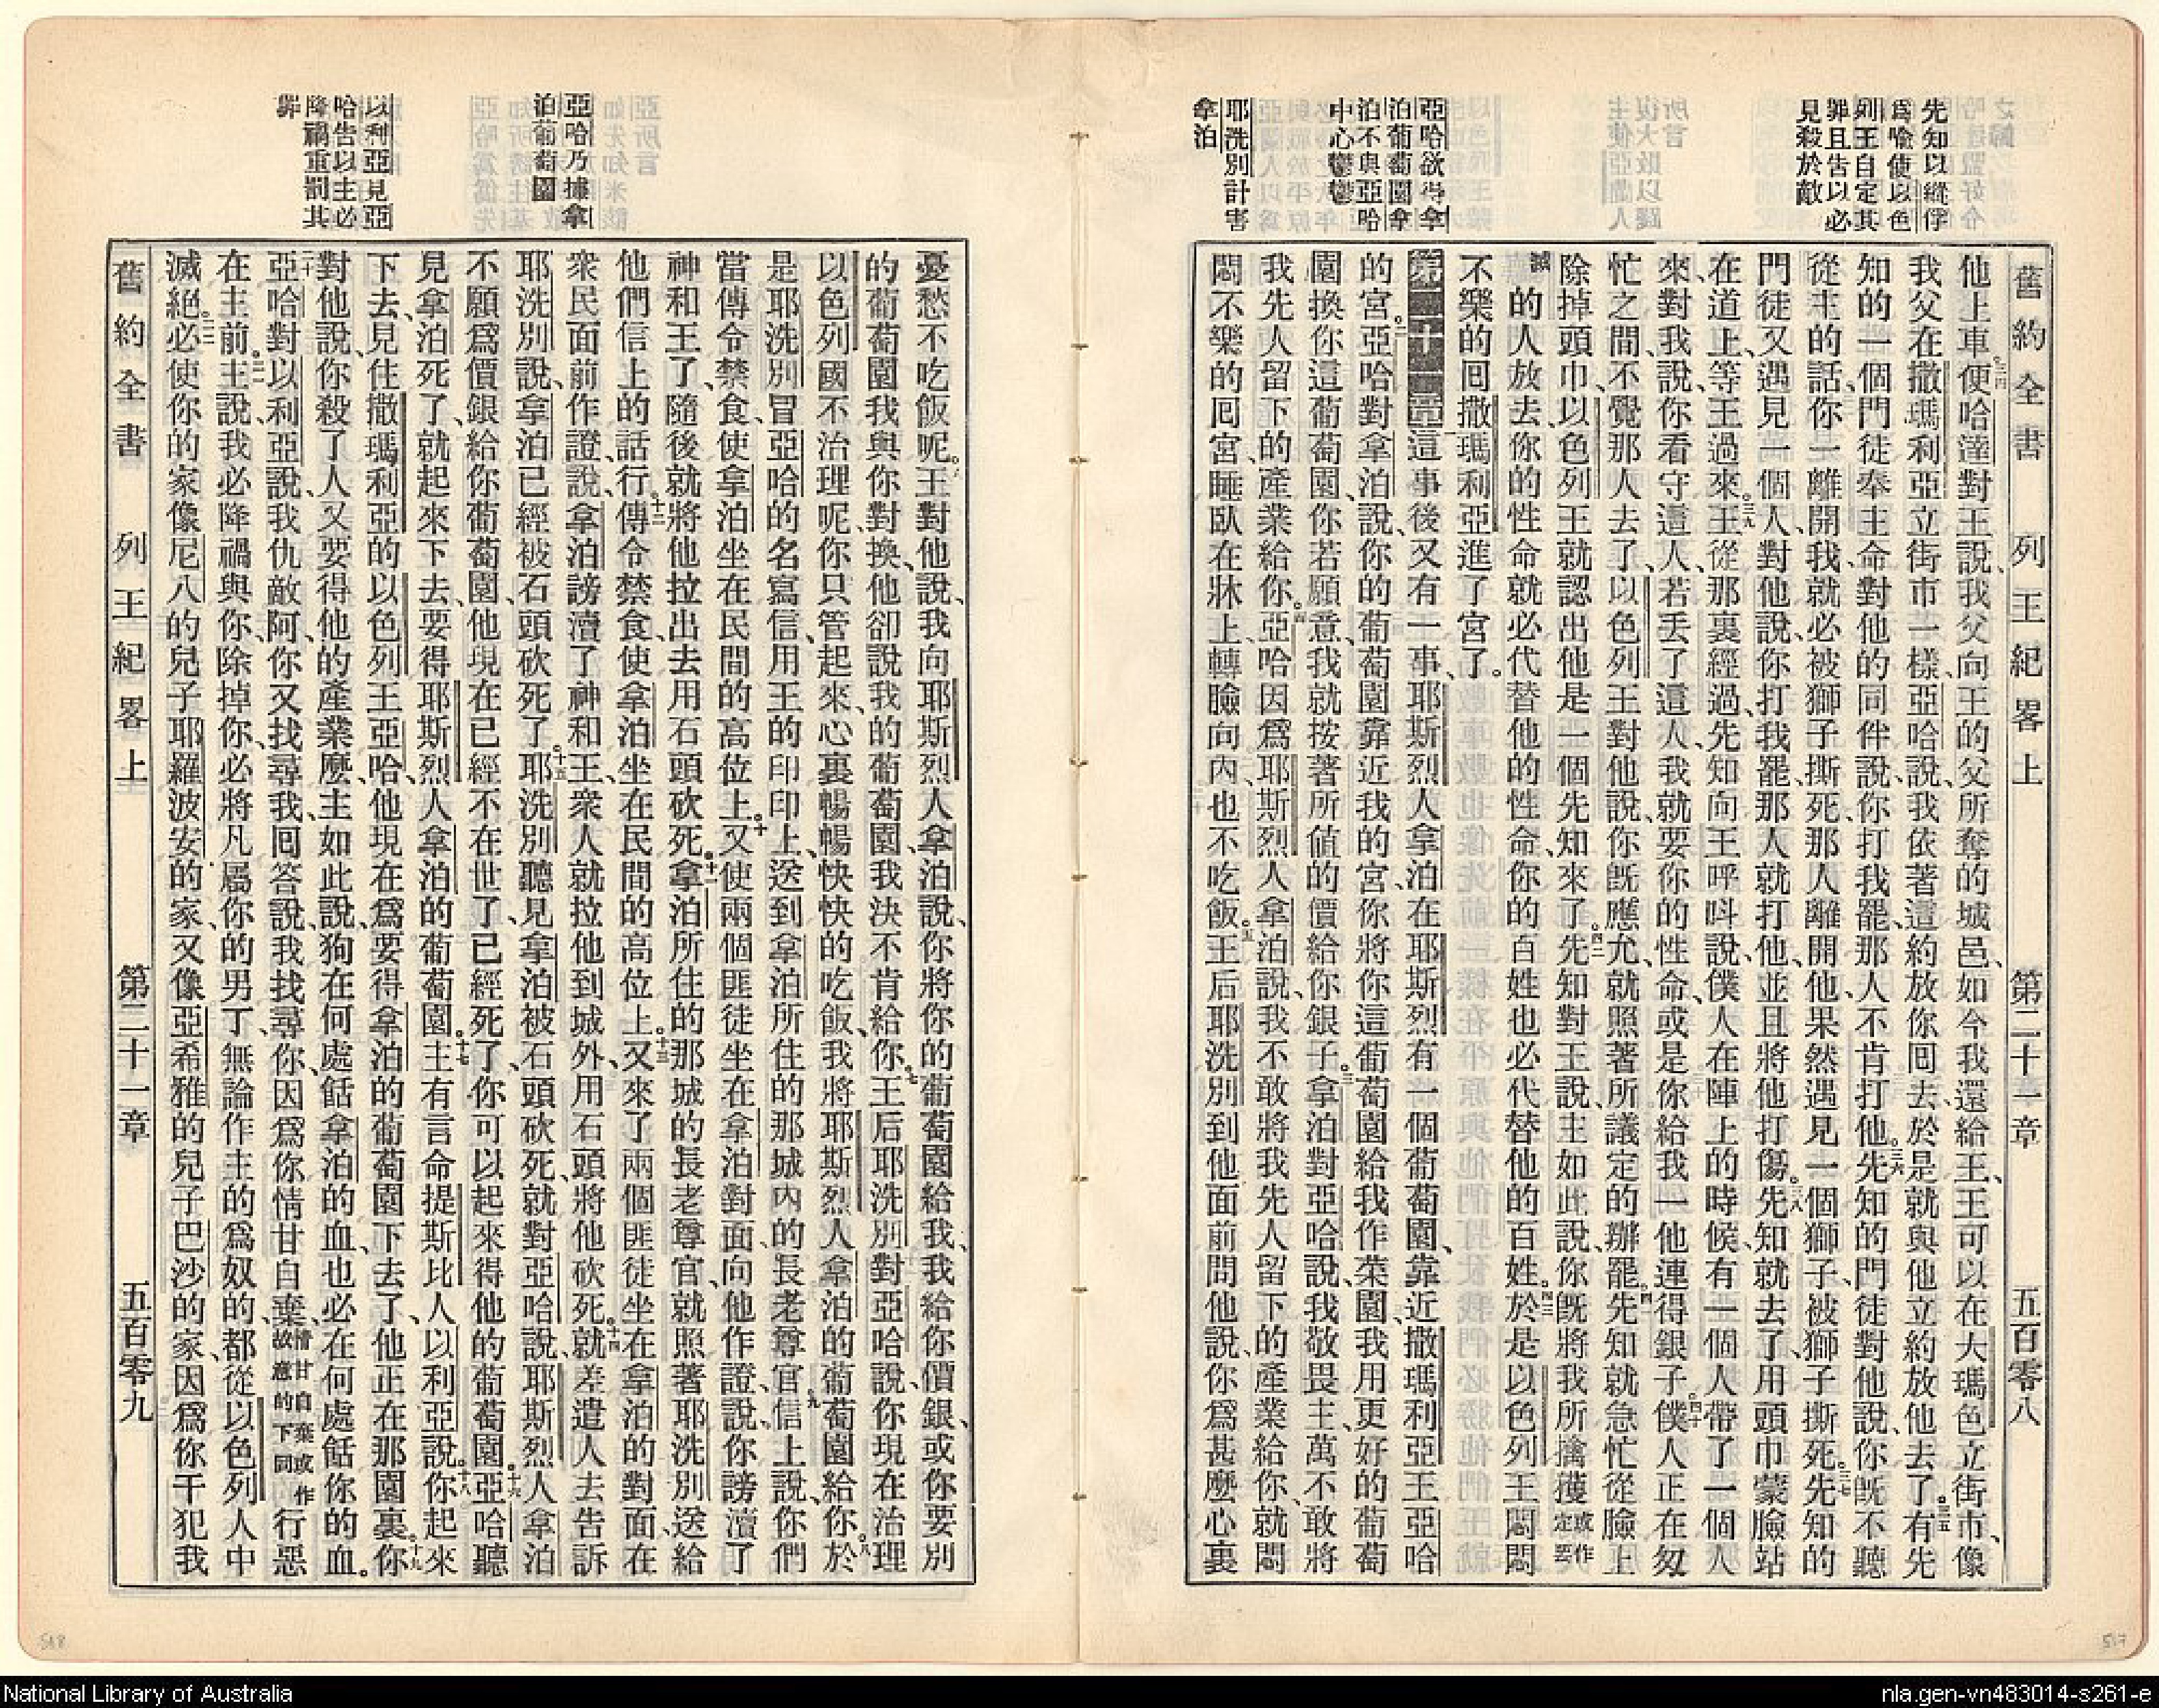 先知以縫俘
爲喩使以色
列王自定其
罪且吿以必
見殺於敵
亞哈欲得拿
泊葡萄園拿
泊不與亞哈
中心鬱鬱
耶洗別計害
拿泊
舊約全書 列王紀畧上 第二十一章 五百零八
他上車便哈達對王說、我父向王的父所奪的城邑、如今我還給王、王可以在大瑪色立街市、像
我父在撒瑪利亞立街市一樣、亞哈說、我依著這約放你囘去、於是就與他立約放他去了。有先
知的一個門徒奉主命對他的同伴說、你打我罷、那人不肯打他。先知的門徒對他說、你旣不聽
從主的話、你一離開我、就必被獅子撕死、那人離開他、果然遇見一個獅子、被獅子撕死。先知的
門徒又遇見一個人、對他說、你打我罷、那人就打他、並且將他打傷。先知就去了、用頭巾蒙臉、站
在道上、等王過來。王從那裏經過、先知向王呼呌說、僕人在陣上的時候、有一個人帶了一個人
來、對我說、你看守這人、若丟了這人、我就要你的性命、或是你給我一他連得銀子。僕人正在匆
忙之間、不覺那人去了、以色列王對他說、你旣應允、就照著所議定的辦罷。先知就急忙從臉上
除掉頭巾、以色列王就認出他是一個先知來了。先知對王說、主如此說、你旣將我所擒獲或作定要
滅的人放去、你的性命就必代替他的性命、你的百姓也必代替他的百姓。於是以色列王悶悶
不樂的囘撒瑪利亞進了宮了。
第二十一章這事後又有一事、耶斯烈人拿泊在耶斯烈有一個葡萄園、靠近撒瑪利亞王亞哈
的宮。亞哈對拿泊說、你的葡萄園靠近我的宮、你將你這葡萄園給我作菜園、我用更好的葡萄
園換你這葡萄園、你若願意、我就按著所値的價給你銀子。拿泊對亞哈說、我敬畏主、萬不敢將
我先人留下的產業給你。亞哈因爲耶斯烈人拿泊說、我不敢將我先人留下的產業給你、就悶
悶不樂的囘宮、睡臥在牀上、轉臉向內、也不吃飯。王后耶洗別到他面前問他說、你爲甚麽心裏
亞哈乃據拿
泊葡萄園
以利亞見亞
哈告以主必
降禍重罰其
罪
憂愁不吃飯呢。王對他說、我向耶斯烈人拿泊說、你將你的葡萄園給我、我給你價銀、或你要別
的葡萄園、我與你對換、他卻說、我的葡萄園、我決不肯給你。王后耶洗別對亞哈說、你現在治理
以色列國不治理呢、你只管起來、心裏暢暢快快的吃飯、我將耶斯烈人拿泊的葡萄園給你。於
是耶洗別冒亞哈的名寫信、用王的印印上、送到拿泊所住的那城內的長老尊官。信上說、你們
當傳令禁食、使拿泊坐在民間的高位上。又使兩個匪徒坐在拿泊對面、向他作證、說、你謗瀆了
神和王了、隨後就將他拉出去用石頭砍死。拿泊所住的那城的長老尊官、就照著耶洗別送給
他們信上的話行。傳令禁食、使拿泊坐在民間的高位上。又來了兩個匪徒坐在拿泊的對面、在
衆民面前作證、說、拿泊謗瀆了神和王、衆人就拉他到城外、用石頭將他砍死。就差遣人去告訴
耶洗別說、拿泊已經被石頭砍死了。耶洗別聽見拿泊被石頭砍死、就對亞哈說、耶斯烈人拿泊
不願爲價銀給你葡萄園、他現在已經不在世了、已經死了、你可以起來得他的葡萄園。亞哈聽
見拿泊死了、就起來下去、要得耶斯烈人拿泊的葡萄園。主有言命提斯比人以利亞說。你起來
下去、見住撒瑪利亞的以色列王亞哈、他現在爲要得拿泊的葡萄園下去了、他正在那園裏。你
對他說、你殺了人又要得他的產業麽、主如此說、狗在何處餂拿泊的血、也必在何處餂你的血。
亞哈對以利亞說、我仇敵阿、你又找尋我、囘答說、我找尋你、因爲你情甘自棄、情甘自棄或作故意的下同行惡
在主前。主說、我必降禍與你、除掉你、必將凡屬你的男丁、無論作主的爲奴的、都從以色列人中
滅絕。必使你的家像尼八的兒子耶羅波安的家、又像亞希雅的兒子巴沙的家、因爲你干犯我
舊約全書 列王紀畧上 第二十一章 五百零九
518
517
National Library of Australia
nla.gen-vn483014-s261-e